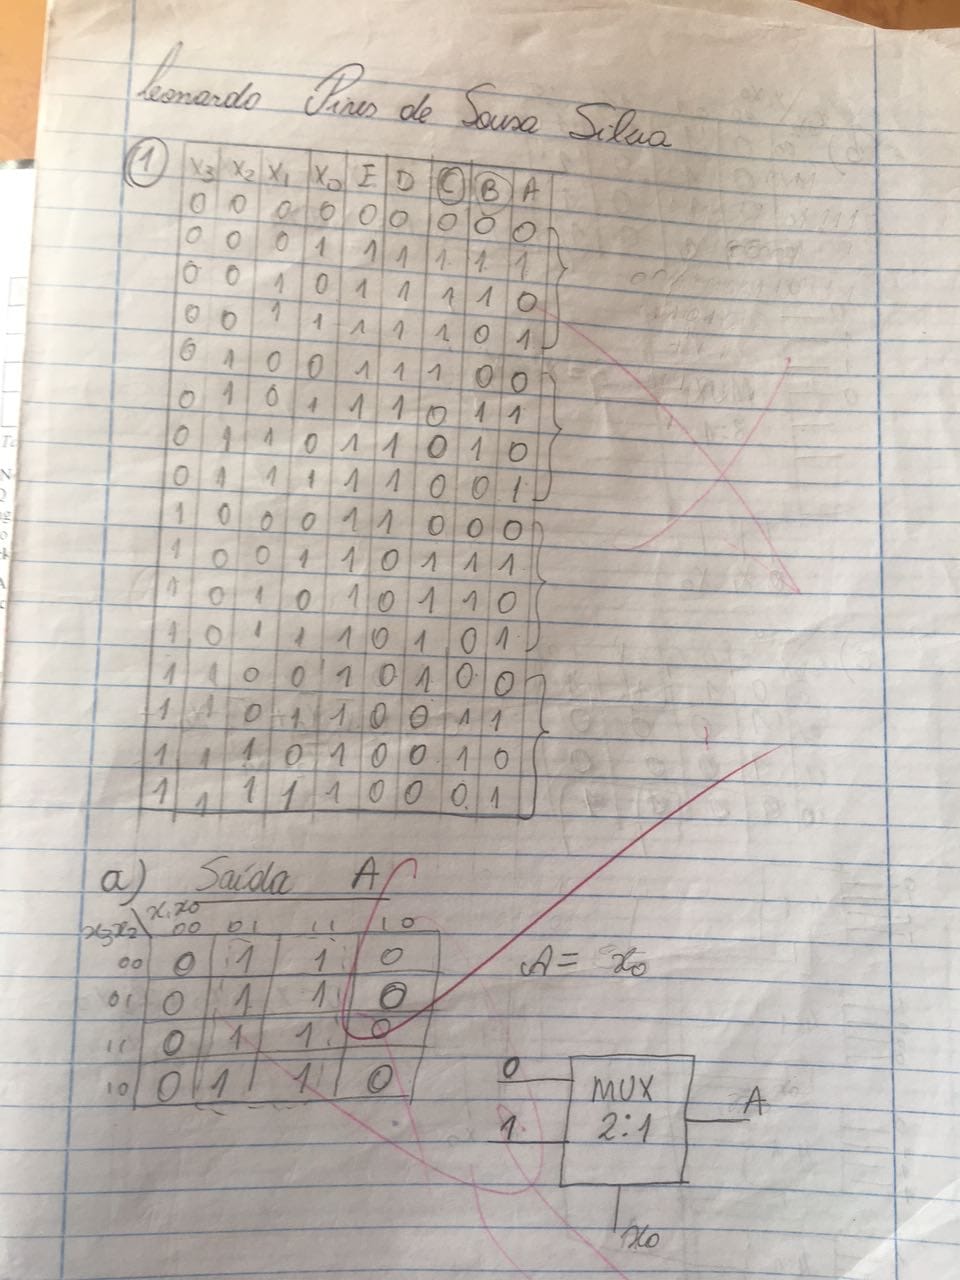 Leonardo Pires de Sousa Silva
1 X3 X2 X1 X0 E D C B A
0 0 0 0 0 0 0 0 0
0 0 0 1 1 1 1 1 1
0 0 1 0 1 1 1 1 0
0 0 1 1 1 1 1 0 1
0 1 0 0 1 1 1 0 0
0 1 0 1 1 1 0 1 1
0 1 1 0 1 1 0 1 0
0 1 1 1 1 1 0 0 1
1 0 0 0 1 1 0 0 0
1 0 0 1 1 0 1 1 1
1 0 1 0 1 0 1 1 0
1 0 1 1 1 0 1 0 1
1 1 0 0 1 0 1 0 0
1 1 0 1 1 0 0 1 1
1 1 1 0 1 0 0 1 0
1 1 1 1 1 0 0 0 1
a) Saída A
x3x2\x1x0 00 01 11 10
00 0 1 1 0
01 0 1 1 0
11 0 1 1 0
10 0 1 1 0
A = x0
0 MUX
1 2:1 A
x0